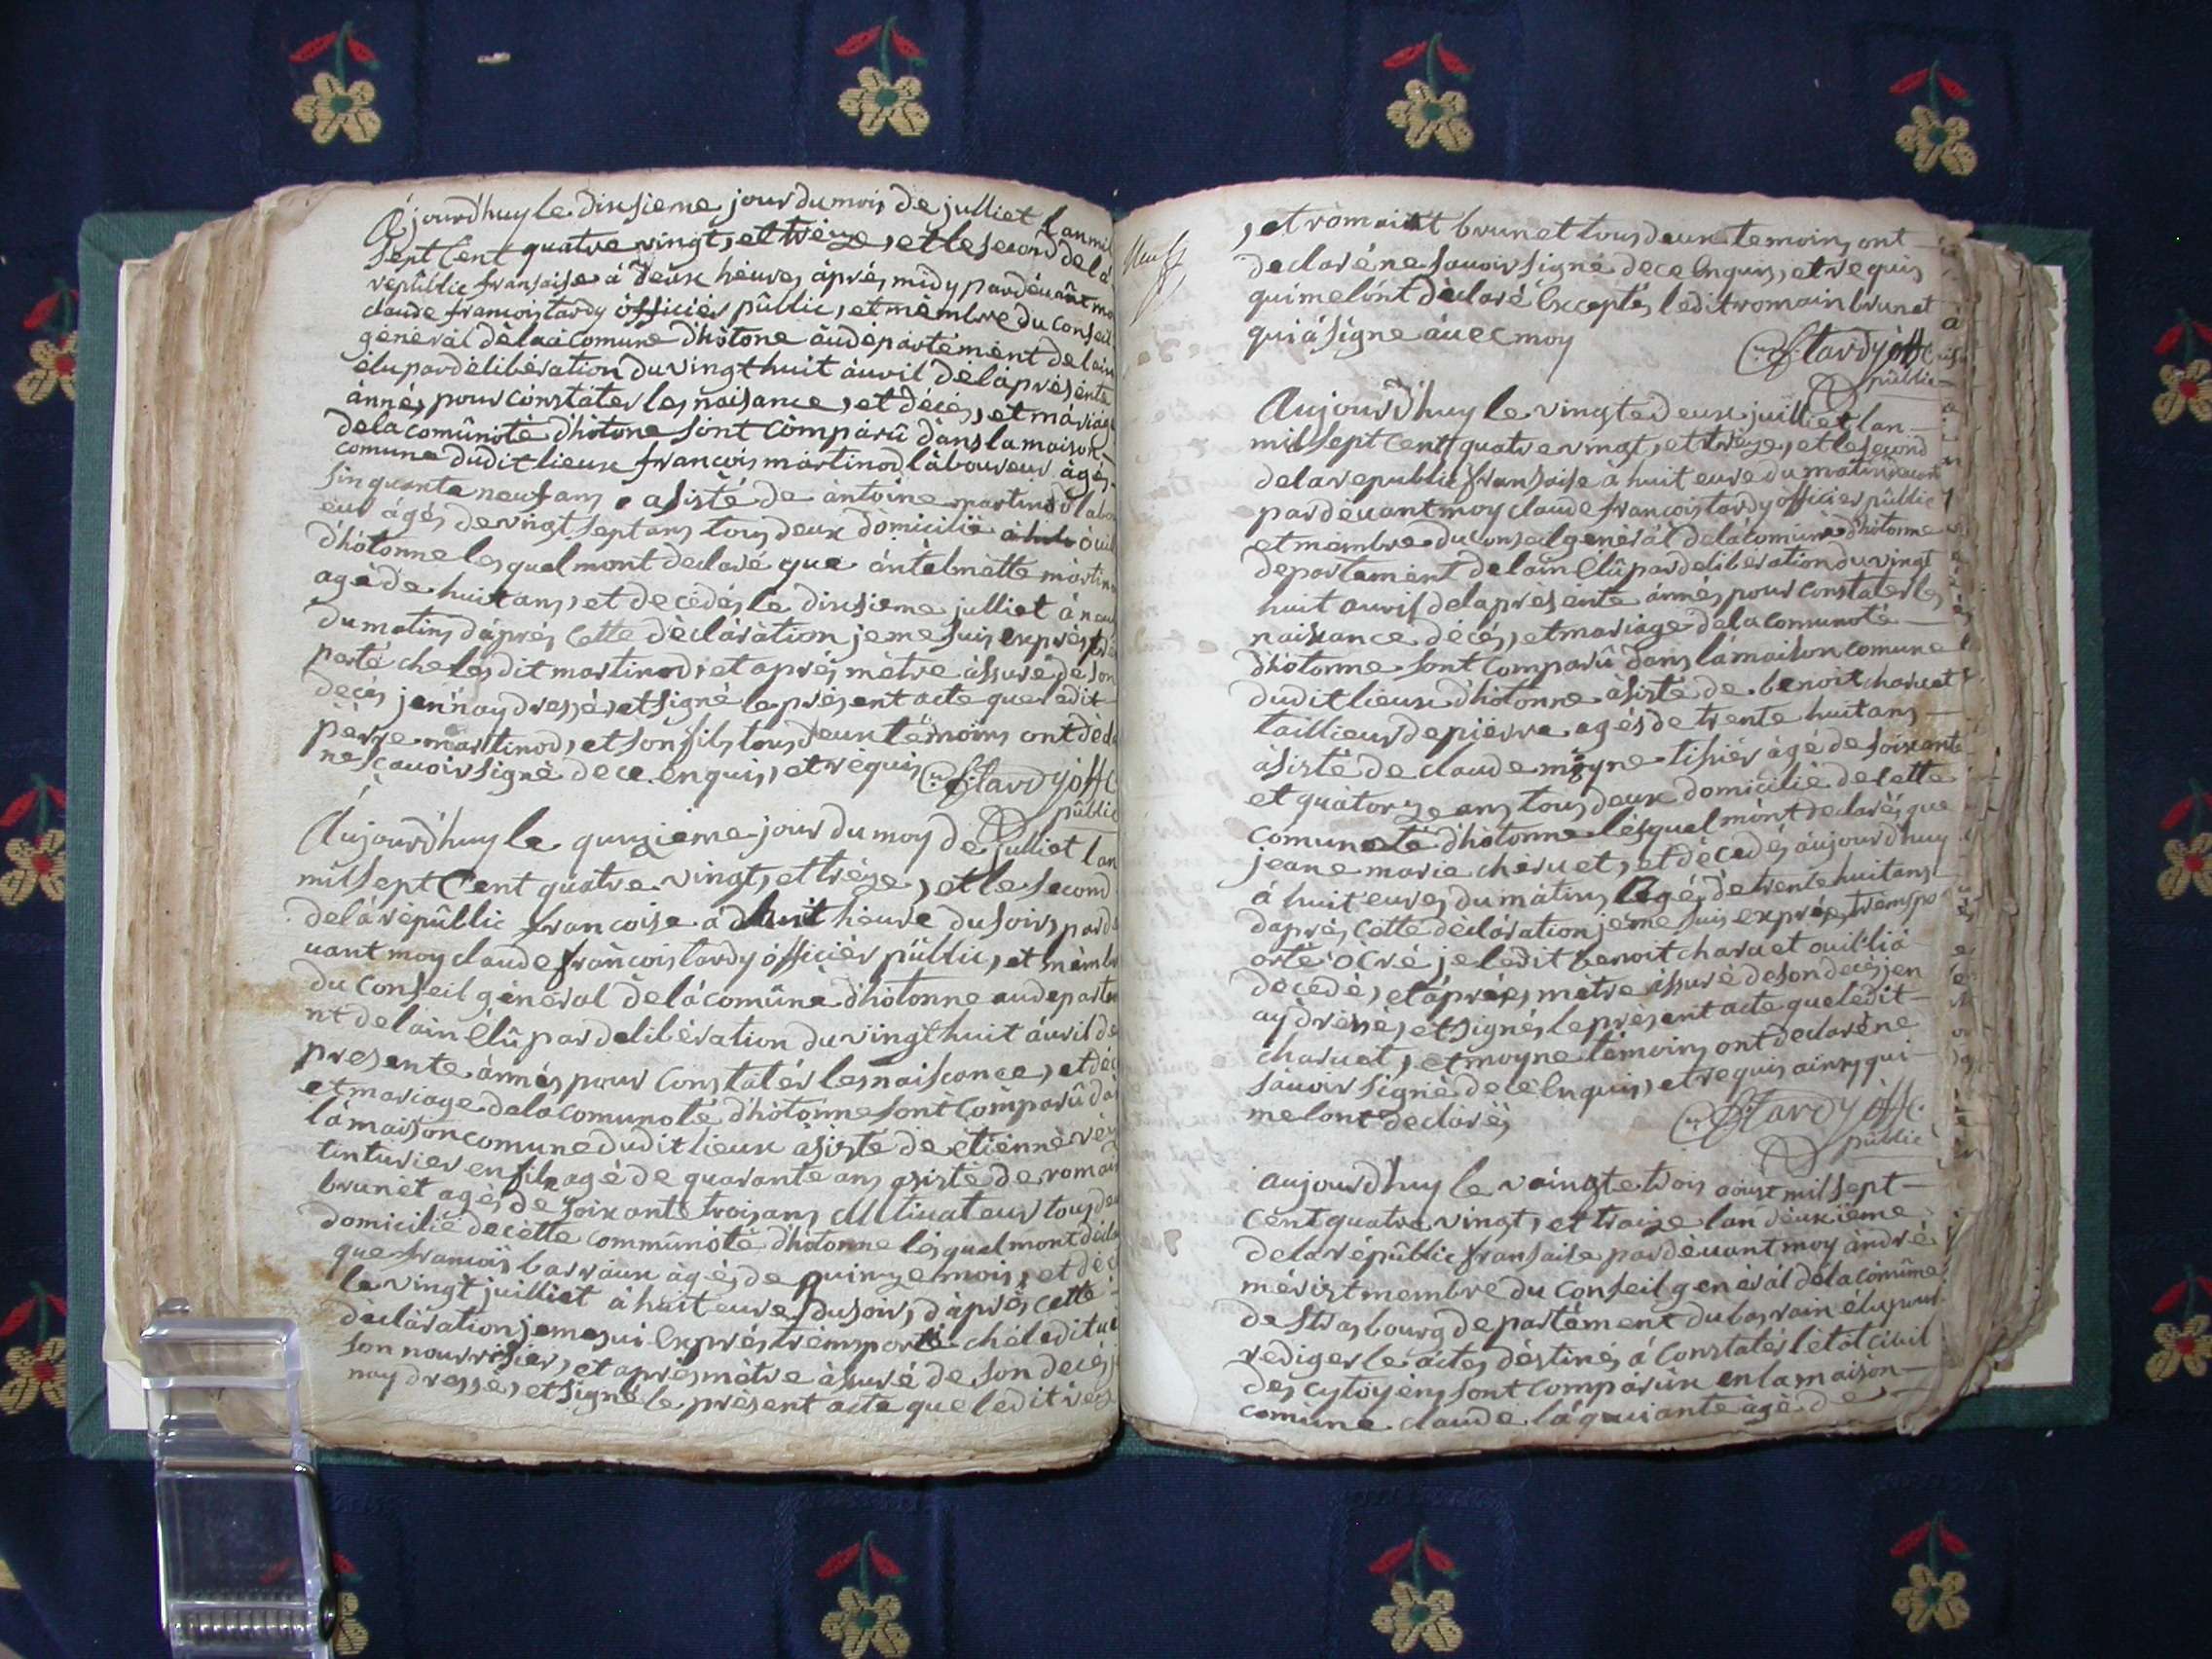 Ajourdhuy le dixsieme jour du mois de julliet lan mil
sept Cent quatre vingt, et treize, et le second de la
republic fransaise a deux heures àprés midy pardevant mo
claude francois tardy officiér public, et mèmbre du conseil
général dela comune dhotone au département de lain
élu par délibération du vingt huit avril de la présente
ànné, pour constater les naisance, et décés, et mariage
dela comunoté dhotone sont comparû dans la maison
comune dudit lieux francois martinod laboureur agés
sinquante neuf ans asisté de antoine martinod labou
eur agés de vingt sept ans tous deux domicilié
dhotonne lesquel mont declaré que antelmette martino
agé de huit ans, et decédés le dixsieme julliet à
du matins daprés Cette déclaration je me suis exprés
porté che les dit martinod, et aprés mètre assuré de son
decés jen nay dressé, et signé le présent acte que ledit
perre martinod, et son fils tous deux témoins ont décla
ne scavoir signé de ce enquis, et réquis C. f. tardy offi
public
Aujourdhuy le quinzieme jour du moy de julliet lan
mil sept Cent quatre vingt, et tréze, et le second
dela republic francoise a huit heure du soirs parde
uant moy claude francois tardy officiér public, et mémbr
du conseil général dela comune dhotonne au departem
nt de lain élû par delibération du vingt huit avril de
presente ànnés pour constatér les naiscance, et déc
et mariage dela comunoté dhotonne sont comparû da
la maison comune dudit lieux asisté de étienne
tinturier en fil agé de quarante ans asisté de romai
brunet agés de soixante trois ans cultivateur tous deu
domicilié de cette communoté dhotonne lésquel mont décla
que francois barraux agés de quinze mois, et déc
le vingt juilliet a huit eure du soir, dàprés cette
déclaration je me sui exprés tremsporté ché ledit
son nourrisier, et aprés mètre assuré de son decés
nay dressé, et signé le présent acte que ledit

, et romain brunet tous deux temoins ont
declaré ne savoir signé de ce Enquis, et requis
qui me lont déclaré Exceptés ledit romain brunet
qui a signe avec moy C. f. tardy off
public
Aujourdhuy le vingte deux juilliet lan
mil sept Cent quatre vingt, et tréze, et le second
dela republic fransaise à huit eure du matin
par devant moy claude francois tardy officier public
et mémbre du conseil général dela comune dhotonne
departement de lain Elû par deliberation du vingt
huit avril de la presente ànnés pour constater les
naissance décés, et mariage dela comunoté
dhotonne sont comparû dans la maison comune
dudit lieux dhotonne àsisté de benoit charvet
taillieur de pierre agés de trente huit ans
àsisté de claude moyne tisiér agé de soixante
et quatorze ans tous deux domicilié de cette
comunoté dhotonne lésquel mont declarés que
jeane marie chervet, et décedés aujourdhuy
a huit eures du matins Agés de trente huit ans
daprés cette déclaration je me suis exprés tremspo
orté
décedé, et áprés mètre assuré de son decés jen
ay drésé, et signés le present acte que ledit
charvet, et moyne témoins ont declaré ne
savoir signé de ce Enquis, et requis ainsy qui
me lont declarés C. f. tardy off.
public
aujourdhuy le vaingte trois aoust mil sept
Cent quatre vingt, et traize lan deuxième
dela républic fransaise par devant moy andré
mérist membre du Conseil général déla comune
de strasbourg departément du bas rain élu pour
rediger le actes déstinés á Constatér létat civil
des cytoyéns sont comparûx en la maison
comune claude agé de